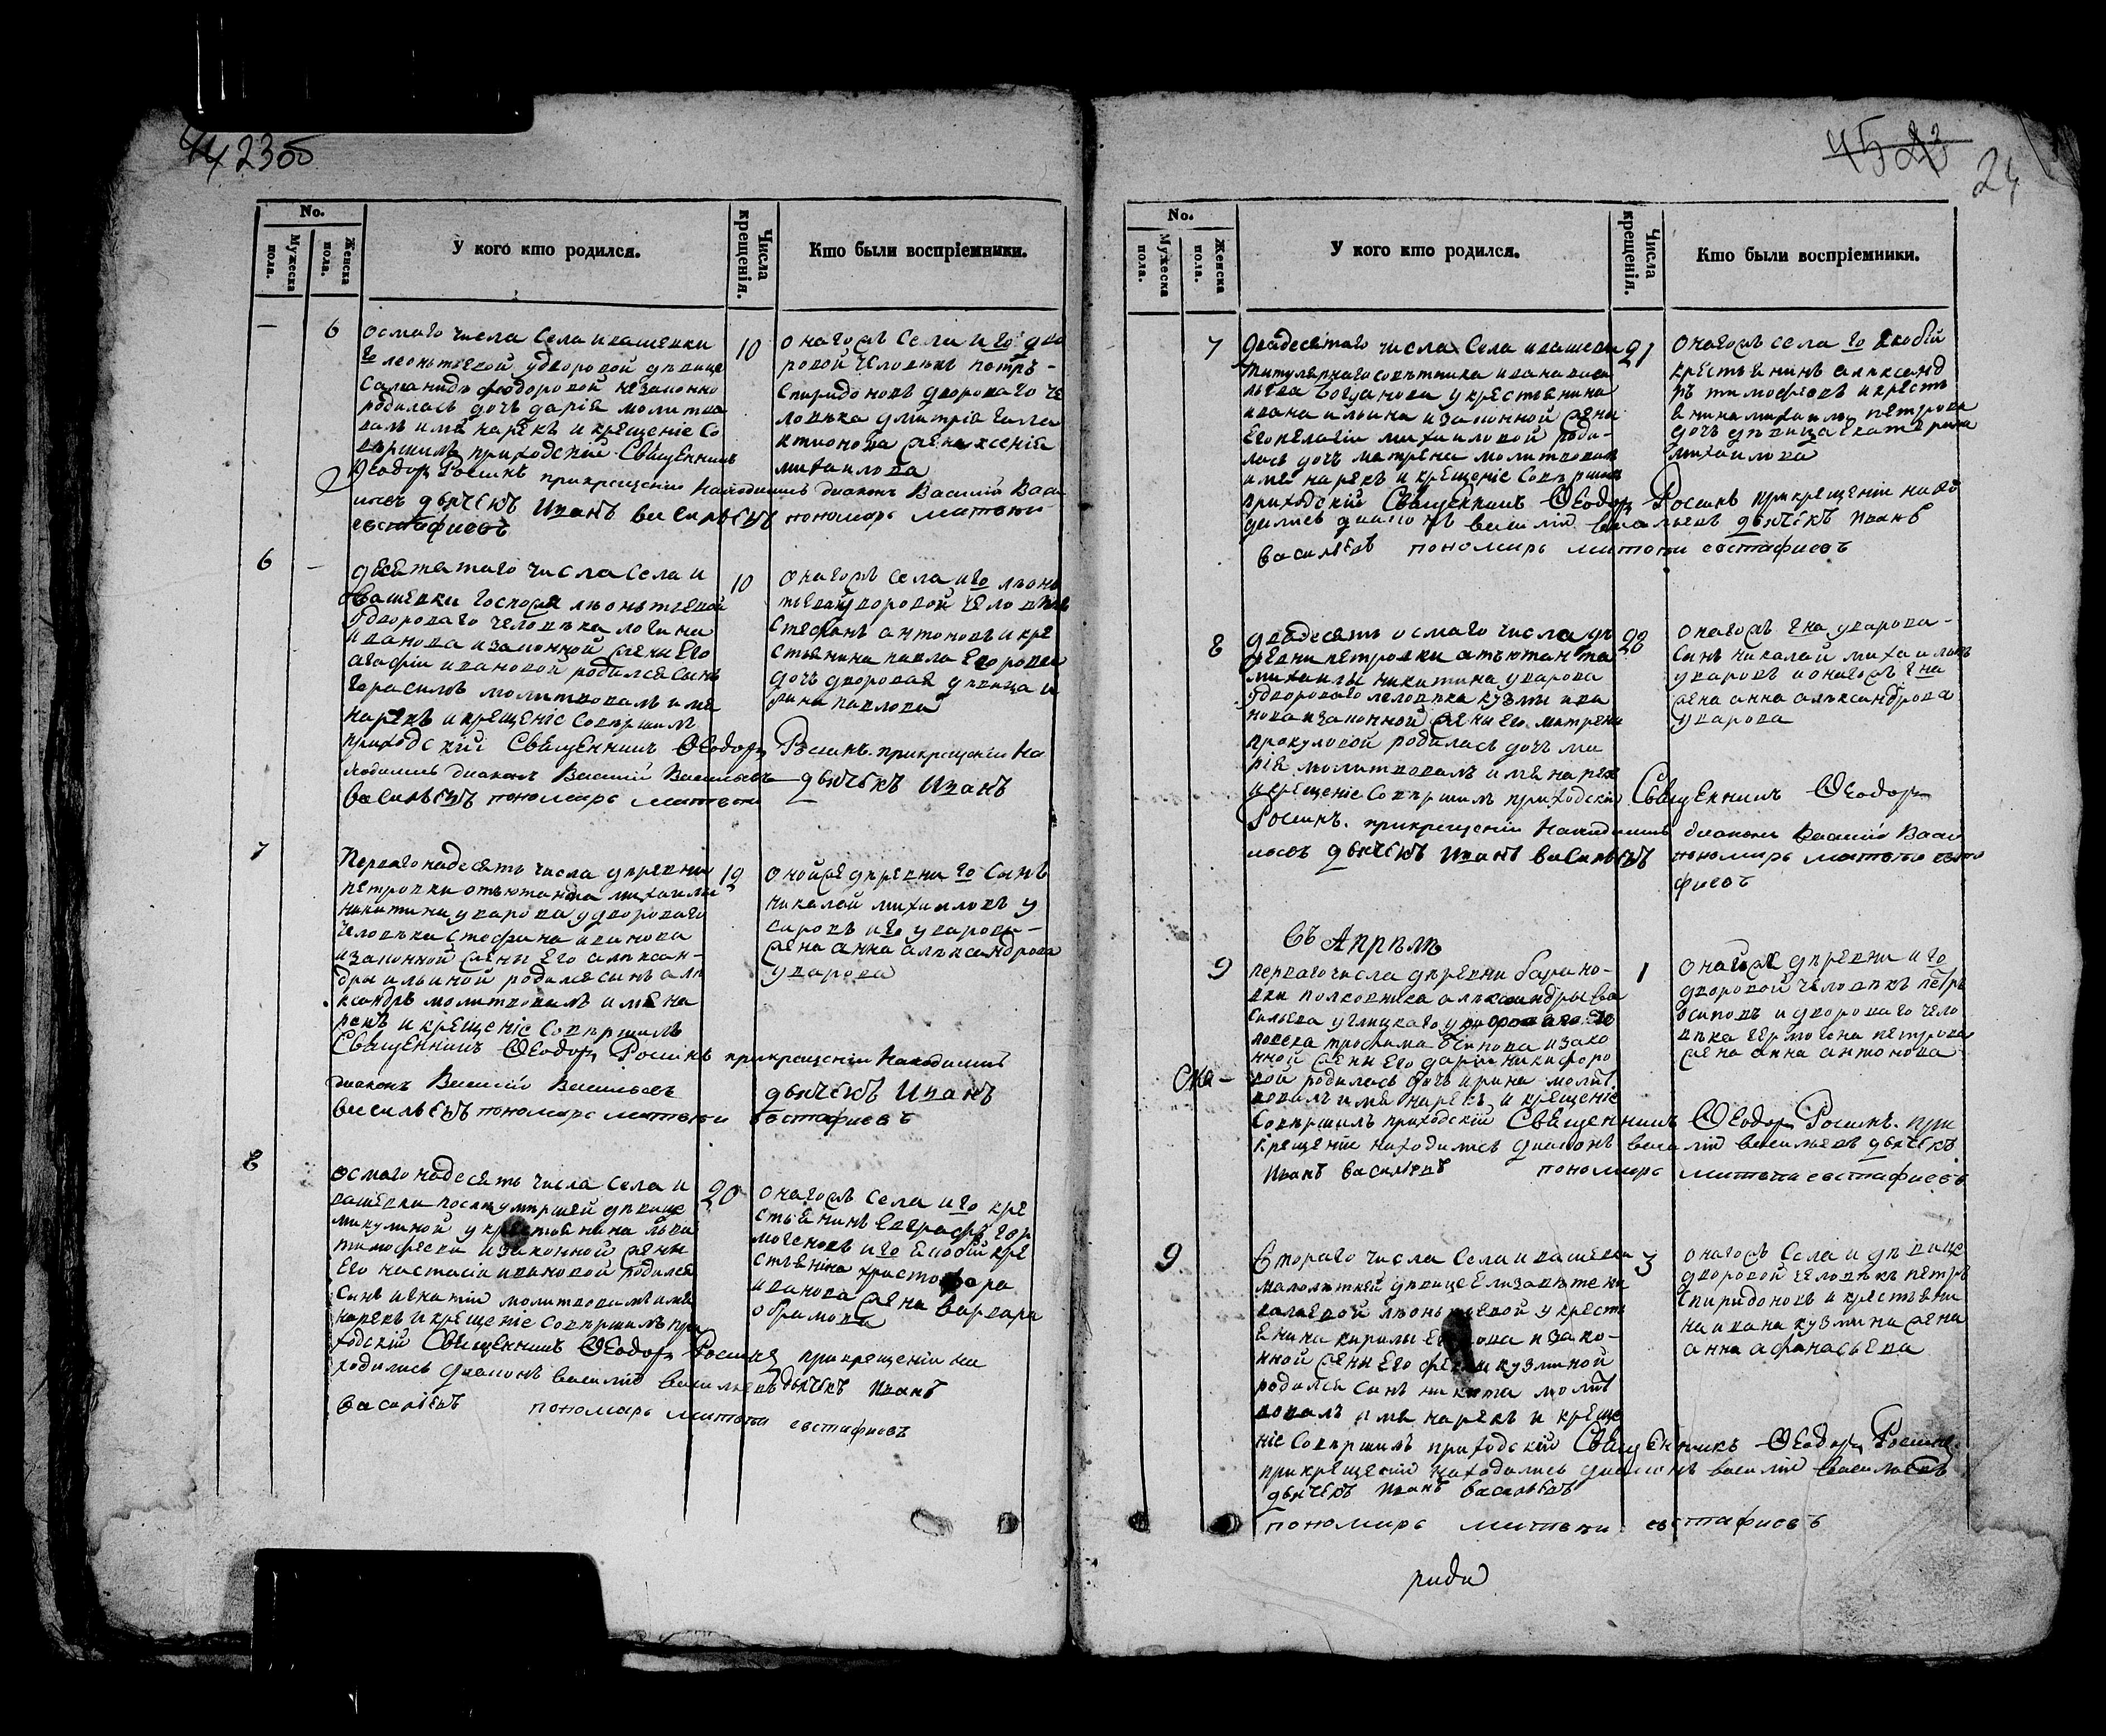 44 23об
No.
Мужеска пола.
Женска пола.
У кого кто родился.
Числа крещенія.
Кто были воспріемники.
— 6 осмаго числа Села ивашевки
го леонтьевой удворовой девице
Саланиде федоровой незаконно
родилась дочь дарія молитво
валъ имя нарекъ и крещеніе Со
вершилъ приходскій Священникъ
Ѳеодоръ Росинъ прикрещеніи Находились диаконъ Василій Васи
льевъ дьячекъ Иванъ васильевъ пономарь матвей
евстафиевъ
10 онагожъ Села и го дво
ровой человекъ петръ
Спиридоновъ двороваго че
ловека дмитрія гала
ктионова жена ксенія
михаилова
6 — десятаго числа Села и
вашевки госпожи леонтьевой
удвороваго человека логина
иванова изаконной жены Его
агафіи ивановой родился сынъ
герасимъ молитвовалъ имя
нарекъ икрещеніе Совершилъ
приходскій Священникъ Ѳеодоръ Росинъ. прикрещеніи На
ходились диаконъ Василій Васильевъ дьячекъ Иванъ
васильевъ пономарь матвей
10 онагожъ села иго леонь
тьевой дворовой человекъ
Стефанъ антоновъ и кре
стьянина павла Егорова
дочь дворовая девица и
рина павлова
7 Перваго надесять числа деревни
петровки отъютанта михаилы
никитина уварова удвороваго
человека Стефана иванова
изаконной жены Его алексан-
дры ильиной родился сынъ але
ксандръ молитвовалъ имя на
рекъ и крещеніе Совершилъ
Священникъ Ѳеодоръ Росинъ прикрещеніи Находились
диаконъ Василій Васильевъ дьячекъ Иванъ
васильевъ пономарь матвей евстафиевъ
19 онойже деревни го Сынъ
николай михаиловъ у
варовъ иго уварова —
жена анна александрова
уварова
8 осмаго надесять числа Села и
вашевки после умершей девице
микулиной у крестьянина льва
тимофеева изаконной жены
Его настасіи ивановой родился
Сынъ игнатій молитвовалъ имя
нарекъ и крещеніе Совершилъ при
ходскій Священникъ Ѳеодоръ Росинъ прикрещеніи на
ходились диаконъ василій васильевъ дьячекъ Иванъ
васильевъ пономарь матвей евстафиевъ
20 онагожъ Села иго кре
стьянинъ Евграфъ Гер
могеновъ иго крe
стьянина христофора
иванова жена варвара
абрамова
45 23
24
No.
Мужеска пола.
Женска пола.
У кого кто родился.
Числа крещенія.
Кто были воспріемники.
7 двадесятаго числа Села ивашевки
титулярнаго советника ивана васи
льева богданова укрестьянина
ивана ильина изаконной жены
Его пелагіи михаиловой роди-
лась дочь матрена молитвовалъ
имя нарекъ и крещеніе Совершилъ
приходскій Священникъ Ѳеодоръ Росинъ прикрещеніи нахо
дились диаконъ василій васильевъ дьячекъ Иванъ
васильевъ пономарь матвей евстафиевъ
21 онагожъ села го
крестьянинъ александ
ръ тимофеевъ икресть
янина михаилы петрова
дочь девица екатерина
михаилова
8 двадесять осмаго числа де
ревни петровки отъютанта
михаилы никитина уварова
удвороваго человека кузмы ива
нова изаконной жены его матрены
прокуловой родилась дочь ма
рія молитвовалъ имя нарекъ
икрещеніе Совершилъ приходскій Священникъ Ѳеодоръ
Росинъ. прикрещеніи Находились диаконъ Василій Васи
льевъ дьячекъ Иванъ васильевъ пономарь матвей евста
фиевъ
28 онагожъ уварова —
Сынъ николай михаиловъ
уваровъ ионагожъ
жена анна александрова
уварова
Въ Апреле
9 перваго числа деревни барано-
вки полковника александры ва
сильева углицкаго удвороваго че
ловека трофима осипова изако
нной жены Его даріи никифоро
вой родилась дочь ирина молит
вовалъ имя нарекъ и крещеніе
Совершилъ приходскій Священникъ Ѳеодоръ Росинъ. при
крещеніи находились диаконъ василій васильевъ дьячекъ
Иванъ васильевъ пономарь матвей евстафиевъ
1 онагожъ деревни и го
дворовой человекъ петръ
осиповъ и двороваго чело
века Ермогена петрова
жена анна антонова
9 Втораго числа Села ивашевки
малолетней девице Елизавете ни
колаевой леонтьевой у кресть
янина кирилы изако-
нной жены Его кузминой
родился Сынъ никита молит
вовалъ имя нарекъ и креще
ніе Совершилъ приходскій Священникъ Ѳеодоръ Росинъ.
прикрещеніи находились диаконъ василій васильевъ
дьячекъ Иванъ васильевъ
пономарь матвей евстафиевъ
3 онагожъ Села и девице
дворовой человекъ петръ
Спиридоновъ и крестьяни
на ивана кузмина жена
анна афанасьева